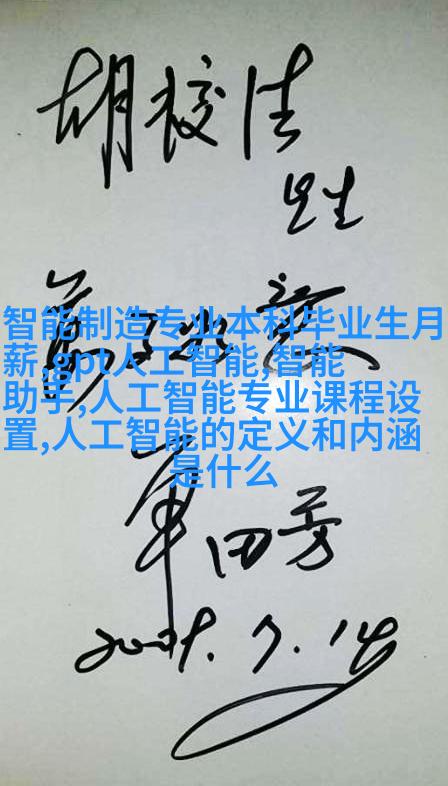 胡
先生
智能制造专业本科毕业生月
薪,gpt人工智能,智能
助手,人工智能专业课程设
置,人工智能的定义和内涵
是什么
单田芳